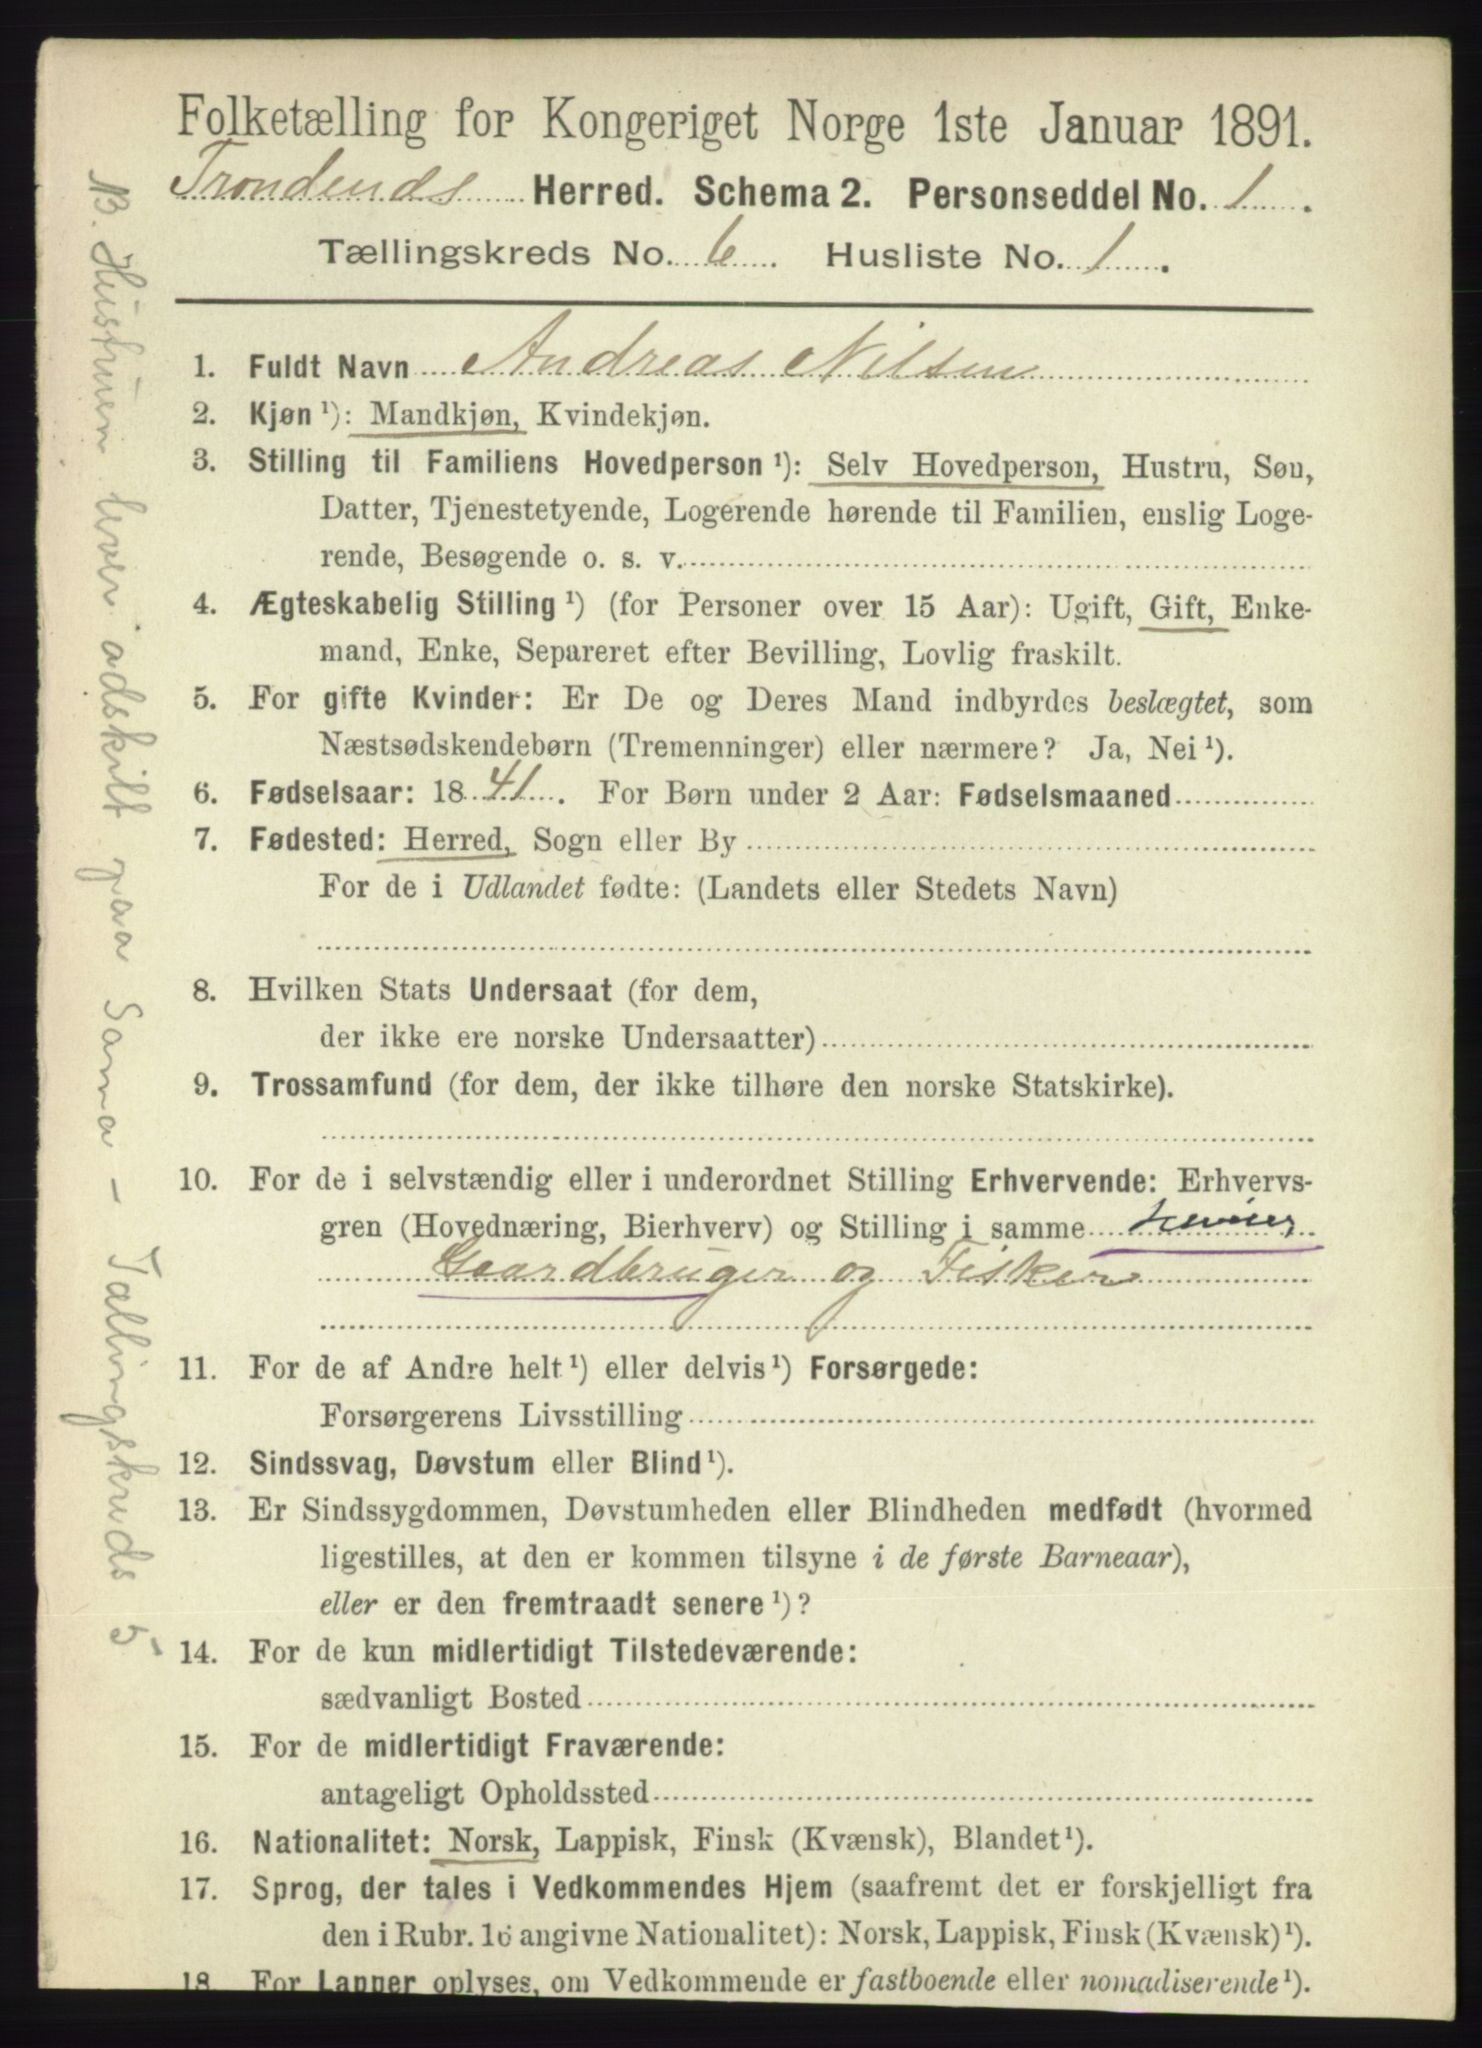 Folketælling for Kongeriget Norge 1ste Januar 1891.
Trondends Herred. Schema 2. Personseddel No. 1.
Tællingskreds No. 6. Husliste No. 1.
1. Fuldt Navn Andreas Nilsen
2. Kjøn¹): Mandkjøn, Kvindekjøn.
3. Stilling til Familiens Hovedperson¹): Selv Hovedperson, Hustru, Søn,
Datter, Tjenestetyende, Logerende hørende til Familien, enslig Loge-
rende, Besøgende o. s. v.
4. Ægteskabelig Stilling¹) (for Personer over 15 Aar): Ugift, Gift, Enke-
mand, Enke, Separeret efter Bevilling, Lovlig fraskilt.
5. For gifte Kvinder: Er De og Deres Mand indbyrdes beslægtet, som
Næstsødskendebørn (Tremenninger) eller nærmere? Ja, Nei¹).
6. Fødselsaar: 1841. For Børn under 2 Aar: Fødselsmaaned
7. Fødested: Herred, Sogn eller By
For de i Udlandet fødte: (Landets eller Stedets Navn)
8. Hvilken Stats Undersaat (for dem,
der ikke ere norske Undersaatter)
9. Trossamfund (for dem, der ikke tilhøre den norske Statskirke).
10. For de i selvstændig eller i underordnet Stilling Erhvervende: Erhvervs-
gren (Hovednæring, Bierhverv) og Stilling i samme
Gaardbruger og Fisker
11. For de af Andre helt¹) eller delvis¹) Forsørgede:
Forsørgerens Livsstilling
12. Sindssvag, Døvstum eller Blind¹).
13. Er Sindssygdommen, Døvstumheden eller Blindheden medfødt (hvormed
ligestilles, at den er kommen tilsyne i de første Barneaar),
eller er den fremtraadt senere¹)?
14. For de kun midlertidigt Tilstedeværende:
sædvanligt Bosted
15. For de midlertidigt Fraværende:
antageligt Opholdssted
16. Nationalitet: Norsk, Lappisk, Finsk (Kvænsk), Blandet¹).
17. Sprog, der tales i Vedkommendes Hjem (saafremt det er forskjelligt fra
den i Rubr. 16 angivne Nationalitet): Norsk, Lappisk, Finsk (Kvænsk)¹).
18. For Lapper oplyses, om Vedkommende er fastboende eller nomadiserende¹).
NB. Hustruen lever adskilt paa Sama - Tællingskreds 5